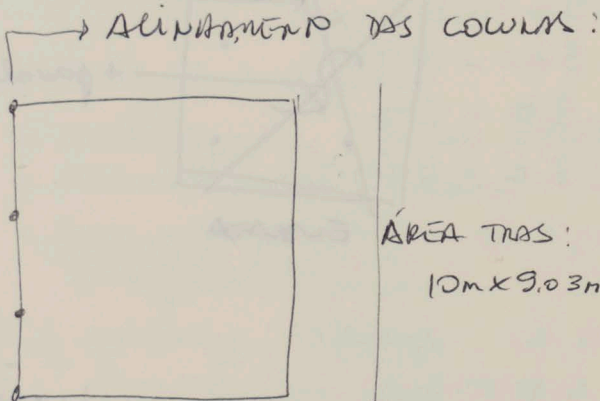 ALINHAMENTO DAS COLUNAS:
ÁREA TRAS:
10m x 9.03m